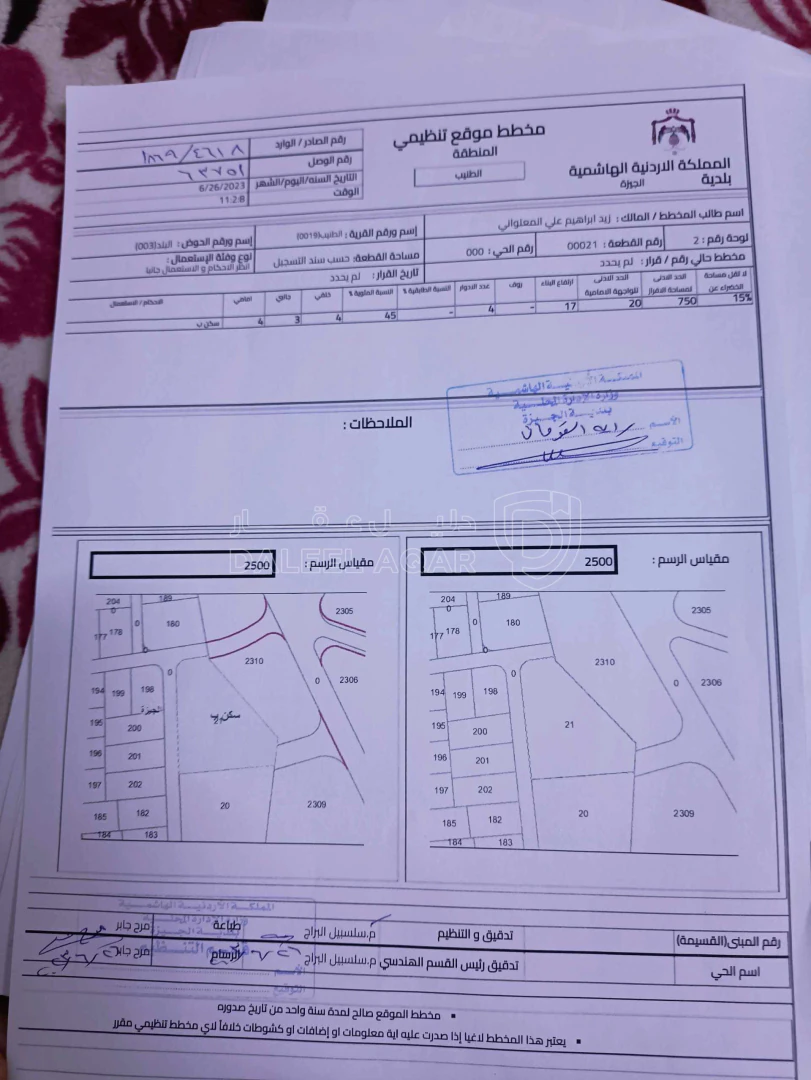 مخطط موقع تنظيمي
المنطقة
الطنيب
المملكة الاردنية الهاشمية
بلدية
الجيزة
رقم الصادر / الوارد
رقم الوصل ٦٣٧٥١
التاريخ السنه/اليوم/الشهر 6/26/2023
الوقت 11:2:8
اسم طالب المخطط / المالك : زيد ابراهيم علي المعلواني
إسم ورقم القرية : الطنيب(0019)
إسم ورقم الحوض : البلد(003)
لوحة رقم : 2
رقم القطعة : 00021
رقم الحي : 000
مساحة القطعة: حسب سند التسجيل
نوع وفئة الإستعمال :
انظر الاحكام و الاستعمال جانبا
مخطط حالي رقم / قرار : لم يحدد
تاريخ القرار : لم يحدد
لا تقل مساحة الخضراء عن
الحد الادنى لمساحة الافراز
الحد الادنى للواجهة الامامية
ارتفاع البناء
روف
عدد الادوار
النسبة الطابقية %
النسبة المئوية %
خلفي
جانبي
امامي
الاحكام / الاستعمال
15% 750 20 17 - 4 - 45 4 3 4 سكن ب
المملكة الأردنية الهاشمية
وزارة الإدارة المحلية
بلدية الجيزة
الأسم
التوقيع
الملاحظات :
دليل عقار
DALEEL AQAR
مقياس الرسم : 2500
مقياس الرسم : 2500
204
0
189
177
178
0
180
0
2305
2310
0
2306
194
199
198
0
195
200
21
196
201
197
202
20
2309
185
182
184
183
204
0
189
177
178
0
180
0
2305
2310
0
2306
194
199
198
0
الجيزة
سكن ب
195
200
196
201
197
202
20
2309
185
182
184
183
رقم المبنى(القسيمة)
تدقيق و التنظيم
م.سلسبيل البراج
طباعة
مرح جابر
اسم الحي
تدقيق رئيس القسم الهندسي
م.سلسبيل البراج
الرسام
مرح جابر
المملكة الأردنية الهاشمية
وزارة الإدارة المحلية
بلدية الجيزة
الأسم
التوقيع
▪ مخطط الموقع صالح لمدة سنة واحد من تاريخ صدوره
▪ يعتبر هذا المخطط لاغيا إذا صدرت عليه اية معلومات او إضافات او كشوطات خلافاً لاي مخطط تنظيمي مقرر